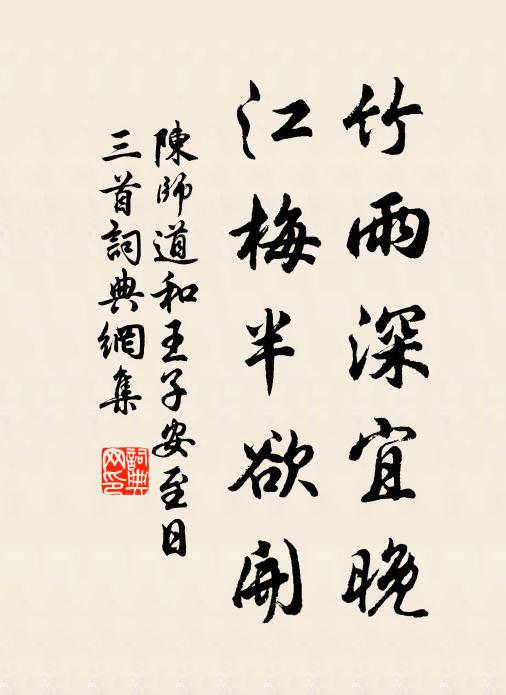 竹雨深宜晚
江梅半欲開
陳師道和王子安至日
三首詞典網集
詞典
网印